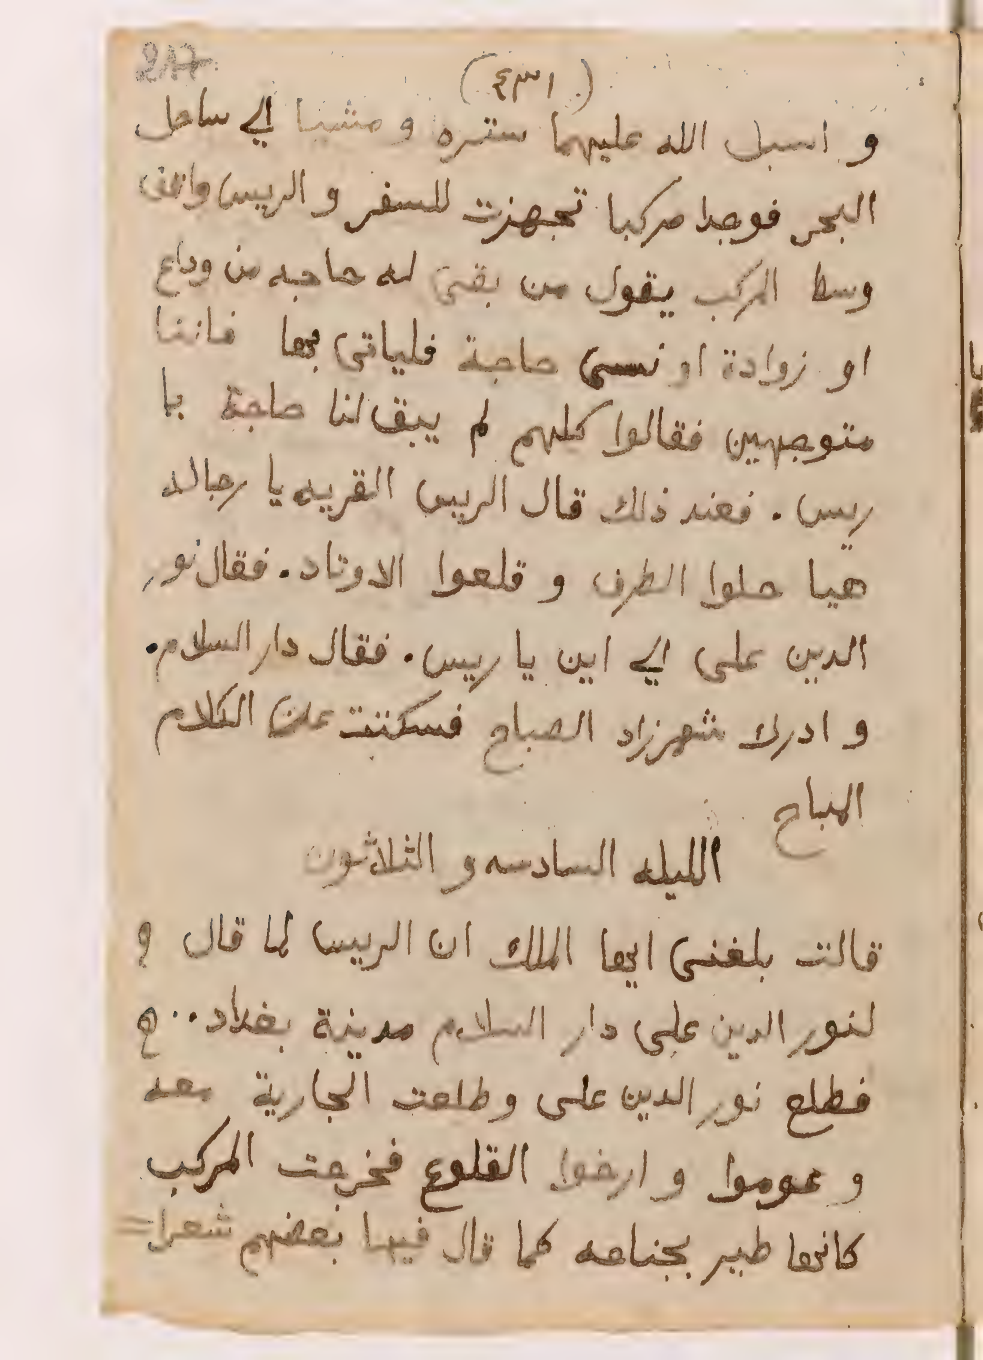 217
(٤٣١)
و اسبل الله عليهما ستره و مشيا الي ساحل
البحر فوجدا مركبا تجهزت للسفر و الريس واقف
وسط المركب يقول من بقى له حاجه من وداع
او زوادة او نسى حاجة فلياتى بها فاننا
متوجهين فقالوا كلهم لم يبق لنا حاجة يا
ريس . فعند ذلك قال الريس القريه يا رجاله
هيا حلوا الطرف و قلعوا الاوتاد . فقال نور
الدين على الي اين يا ريس . فقال دار السلام .
و ادرك شهرزاد الصباح فسكتت عن الكلام
المباح
الليله السادسه و الثلاثون
قالت بلغنى ايها الملك ان الريس لما قال
لنور الدين على دار السلام مدينة بغداد . .
فطلع نور الدين على و طلعت الجارية معه
و عوموا و ارخوا القلوع فخرجت المركب
كانها طير بجناحه كما قال فيها بعضهم شعرا =